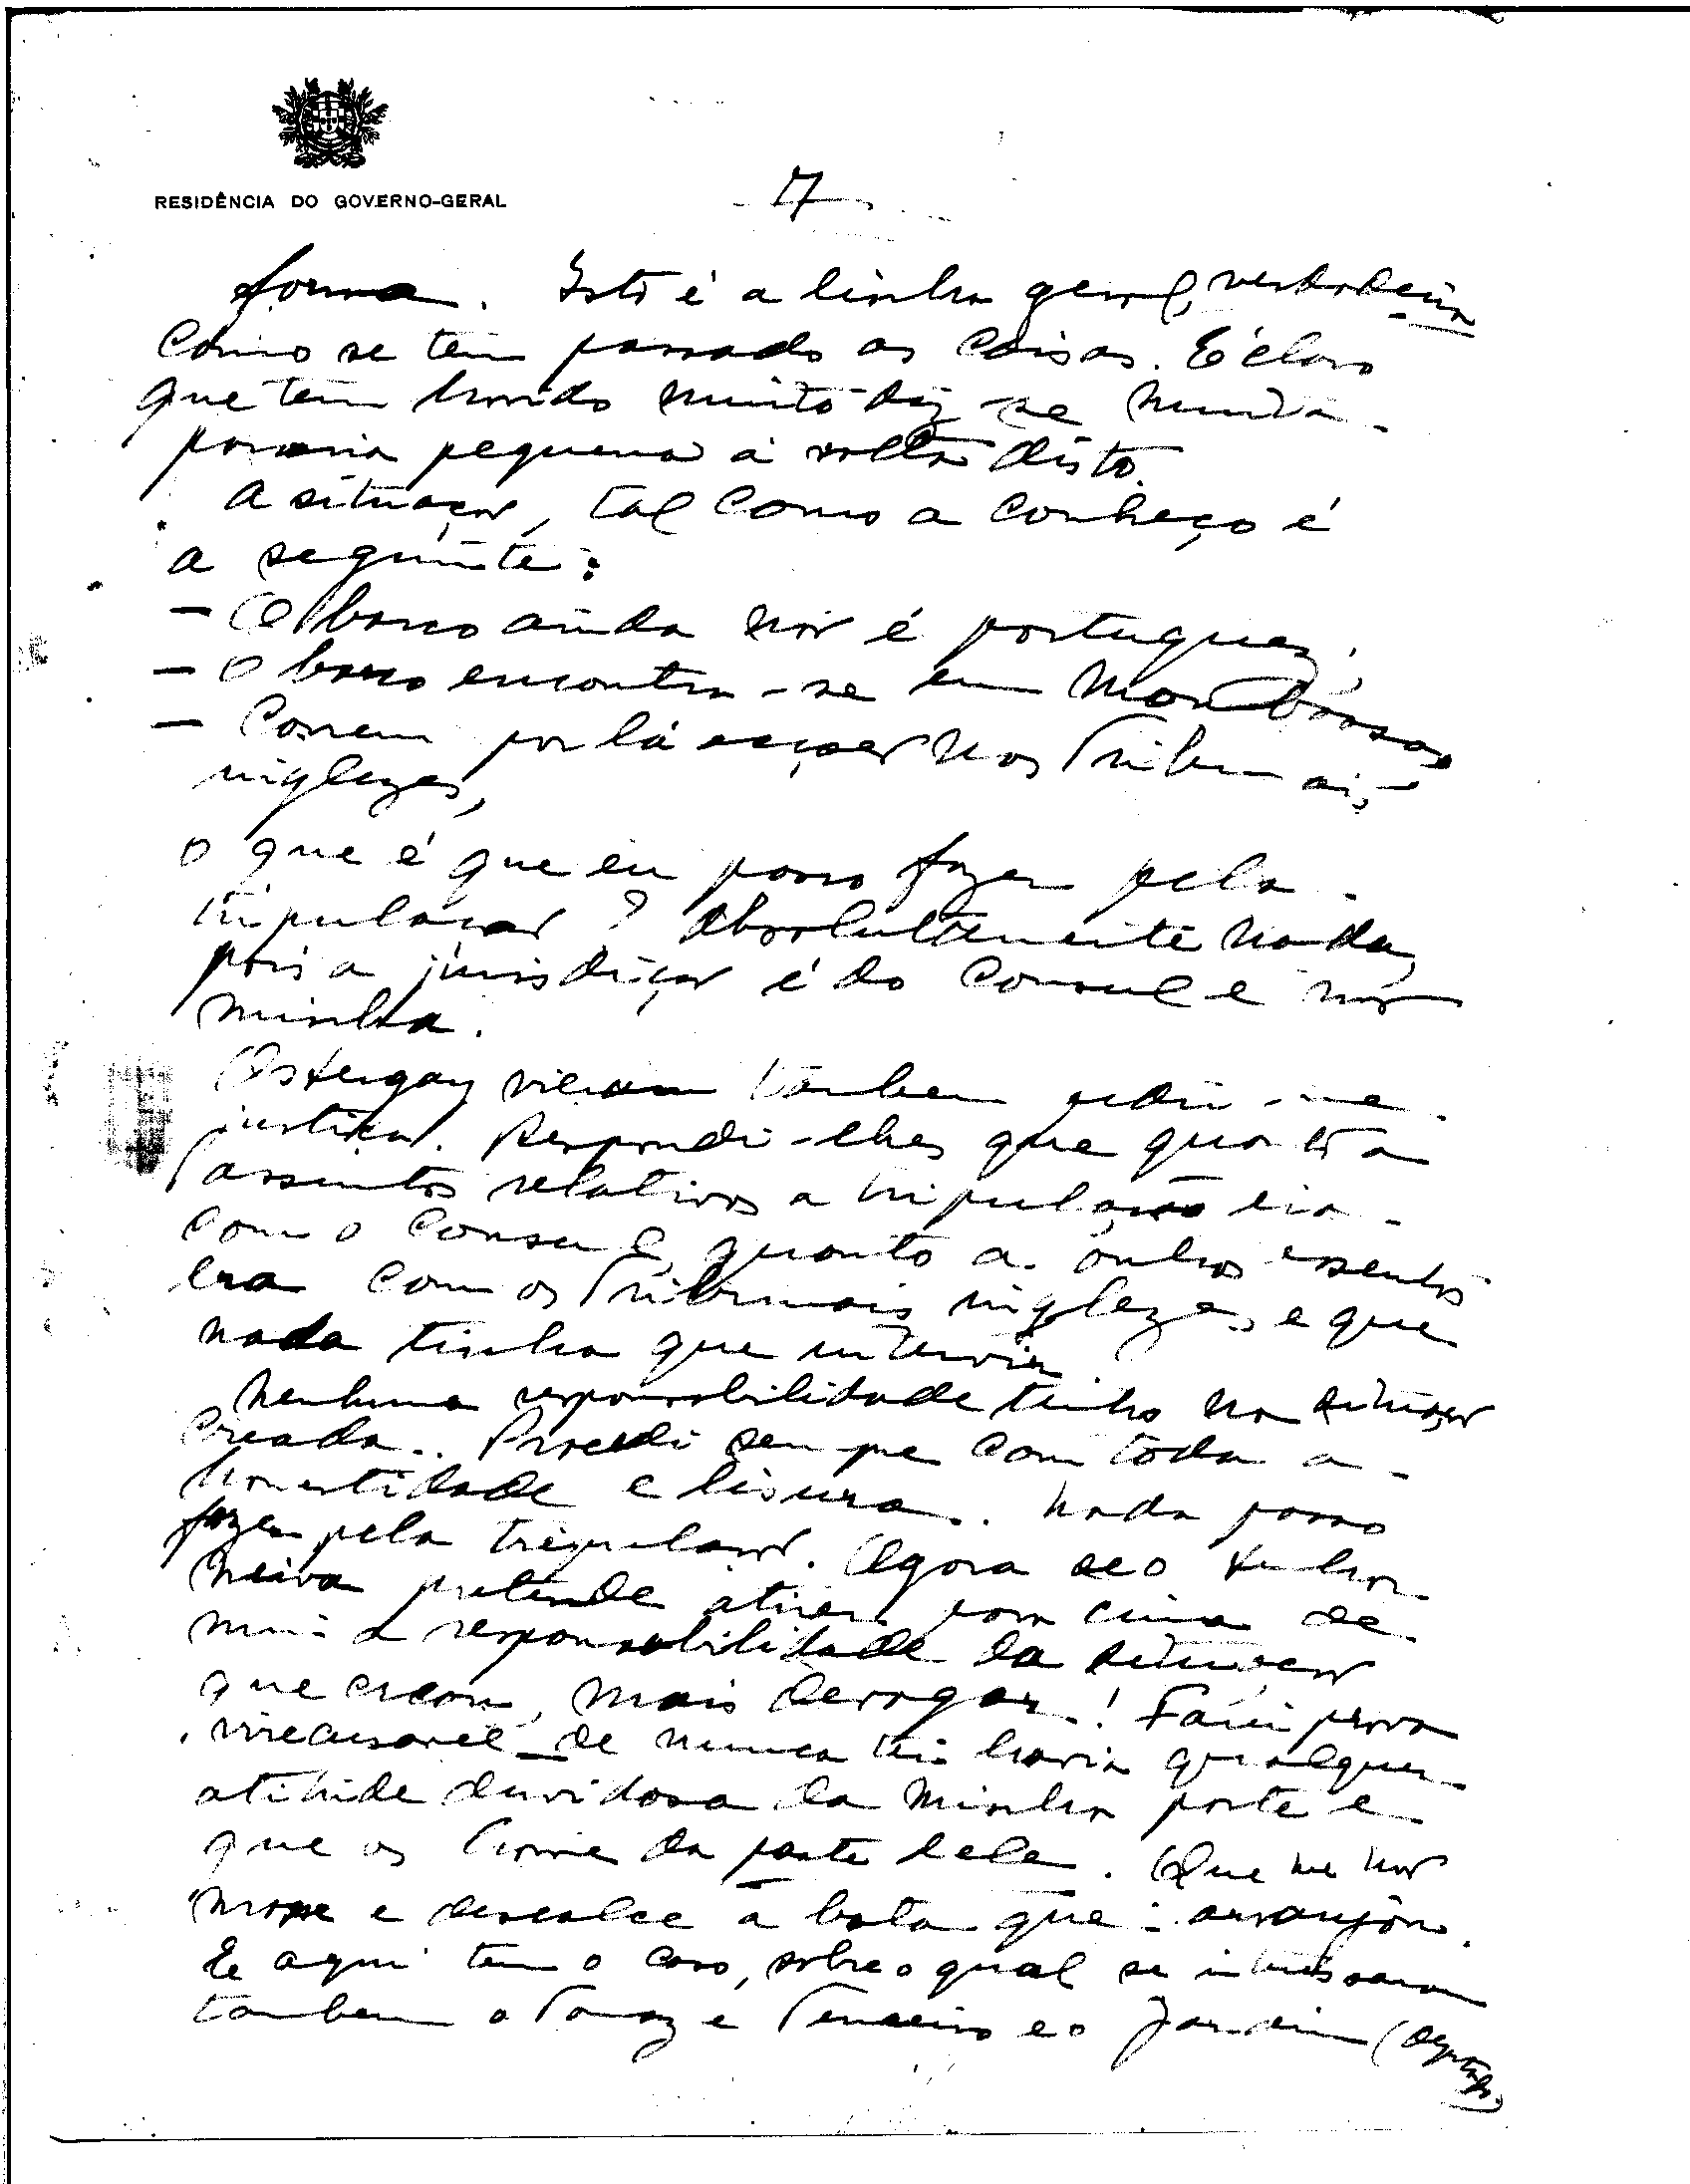 RESIDÊNCIA DO GOVERNO-GERAL
- 7 -
forma. Isto é a linha geral, verdadeira
como se tem passado as coisas. E é claro
que tem havido muito diz-se
pequena à volta disto.
A situação, tal como a conheço é
a seguinte:
- O barco ainda não é portuguez;
- O barco encontra-se em Mombassa
- Correm por lá acções nos Tribunais
inglezes,
O que é que eu posso fazer pela
tripulação? Absolutamente nada,
pois a jurisdição é do Consul e não
minha.
Ostergay vieram tambem pedir-me
justiça. Respondi-lhes que quanto a
assuntos relativos a tripulação era
com o Consul, quanto a outros assentos
era com os Tribunais inglezes, e que
nada tinha que intervir.
Nenhuma responsabilidade tenho na situação
creada. Procedi sempre com toda a
honestidade e lisura. Nada posso
fazer pela tripulação. Agora se o Senhor
Neiva pretende atirar para cima de
mim a responsabilidade da situação
que creou, mais devagar! Farei prova
irrecusavel de nunca ter havia qualquer
atitude duvidosa da minha parte e
que os houve da parte dele. Que me não
mace e descalce a bota que arranjou.
E aqui tem o caso, sobre o qual se interessaram
tambem o Tomaz e Tenreiro e o Jardim (deputado.)